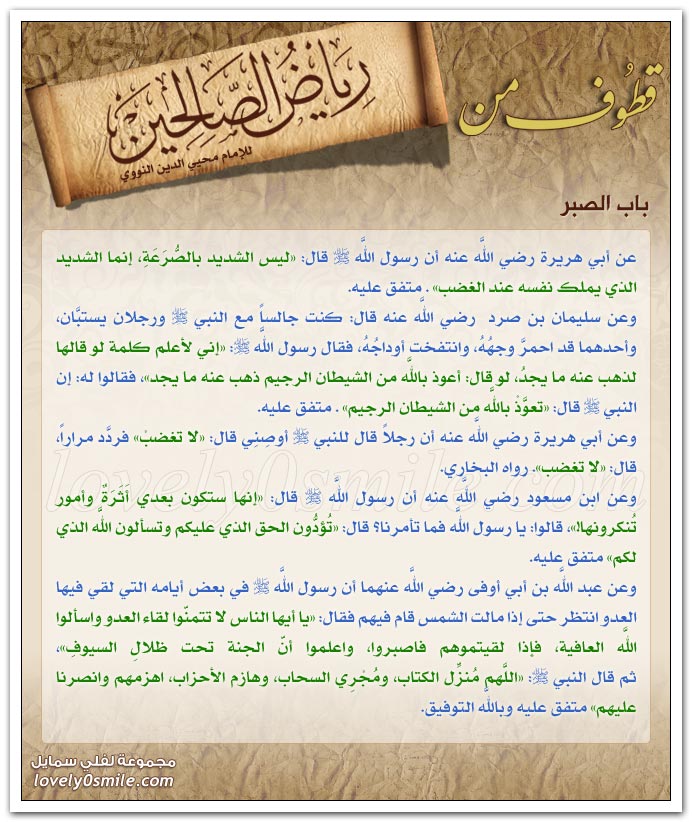 قطوف من
رياض الصالحين
للإمام محيي الدين النووي
باب الصبر
عن أبي هريرة رضي اللَّه عنه أن رسول اللَّه ﷺ قال: «ليس الشديد بالصُّرَعَةِ، إنما الشديد
الذي يملك نفسه عند الغضب» . متفق عليه.
وعن سليمان بن صرد رضي اللَّه عنه قال: كنت جالساً مع النبي ﷺ ورجلان يستبَّان،
وأحدهما قد احمرَّ وجهُهُ، وانتفخت أوداجُهُ، فقال رسول اللَّه ﷺ: «إني لأعلم كلمة لو قالها
لذهب عنه ما يجدُ، لو قال: أعوذ باللَّه من الشيطان الرجيم ذهب عنه ما يجد»، فقالوا له: إن
النبي ﷺ قال: «تعوَّذْ باللَّه من الشيطان الرجيم» . متفق عليه.
وعن أبي هريرة رضي اللَّه عنه أن رجلاً قال للنبي ﷺ أوصِنِي قال: «لا تغضبْ» فردَّد مراراً،
قال: «لا تغضب». رواه البخاري.
وعن ابن مسعود رضي اللَّه عنه أن رسول اللَّه ﷺ قال: «إنها ستكون بعدي أَثَرَةٌ وأمور
تُنكرونها!»، قالوا: يا رسول اللَّه فما تأمرنا؟ قال: «تُؤدُّون الحق الذي عليكم وتسألون اللَّه الذي
لكم» متفق عليه.
وعن عبد اللَّه بن أبي أوفى رضي اللَّه عنهما أن رسول اللَّه ﷺ في بعض أيامه التي لقي فيها
العدو انتظر حتى إذا مالت الشمس قام فيهم فقال: «يا أيها الناس لا تتمنّوا لقاء العدو واسألوا
اللَّه العافية، فإذا لقيتموهم فاصبروا، واعلموا أنّ الجنة تحت ظلالِ السيوفِ»،
ثم قال النبي ﷺ: «اللَّهم مُنزِّل الكتاب، ومُجْرِي السحاب، وهازم الأحزاب، اهزمهم وانصرنا
عليهم» متفق عليه وباللَّه التوفيق.
lovely0smile.com
مجموعة لفلي سمايل
lovely0smile.com